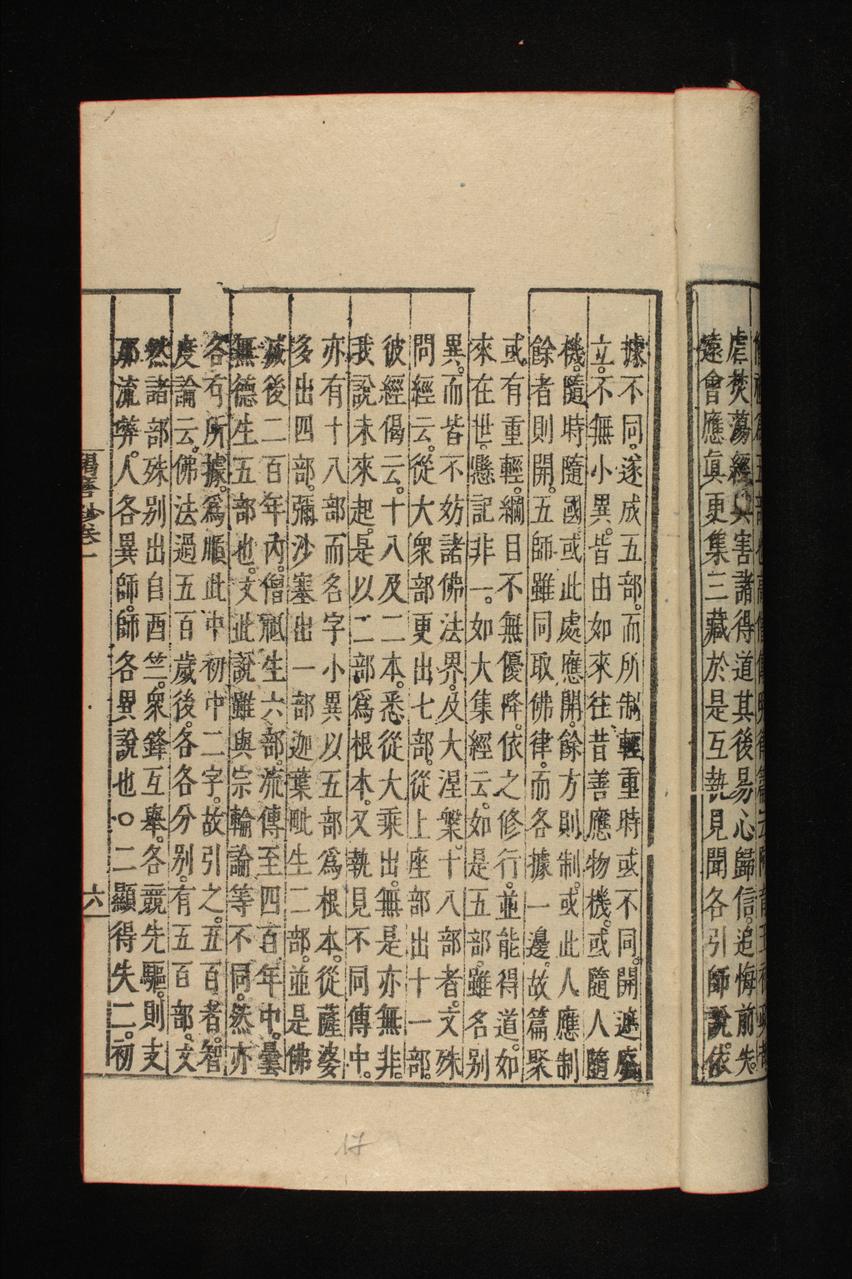 虐焚蕩經典害諸得道其後易心歸信。追悔前失。
遠會應眞更集三藏於是互執見聞各引師說。依
據不同。遂成五部。而所制輕重時或不同。開遮廢
立。不無小異。皆由如來往昔善應物機。或隨人隨
機。隨時隨國或此處應開。餘方則制。或此人應制
餘者則開。五師雖同取佛律。而各據一邊。故篇聚
或有重輕。綱目不無優降。依之修行。並能得道。如
來在世。懸記非一。如大集經云。如是五部雖名別
異。而皆不妨諸佛法界。及大涅槃。十八部者。文殊
問經云。從大衆部更出七部。從上座部出十一部。
彼經偈云。十八及二本。悉從大乘出。無是亦無非。
我說未來起。是以二部爲根本。又執見不同傳中。
亦有十八部而名字小異以五部爲根本。從薩婆
多出四部。彌沙塞出一部迦葉毗生二部。並是佛
滅後二百年內。僧祇生六部。流傳至四百年中。曇
無德生五部也。文此說雖與宗輪論等不同。然亦
各有所據。爲順此中初中二字。故引之。五百者。智
度論云。佛法過五百歲後。各各分別。有五百部。文
然諸部殊別出自西竺。衆鋒互舉。各競先驅。則支
那流弊。人各異師。師各異說也。○二顯得失二。初
羯磨鈔卷一
六
17